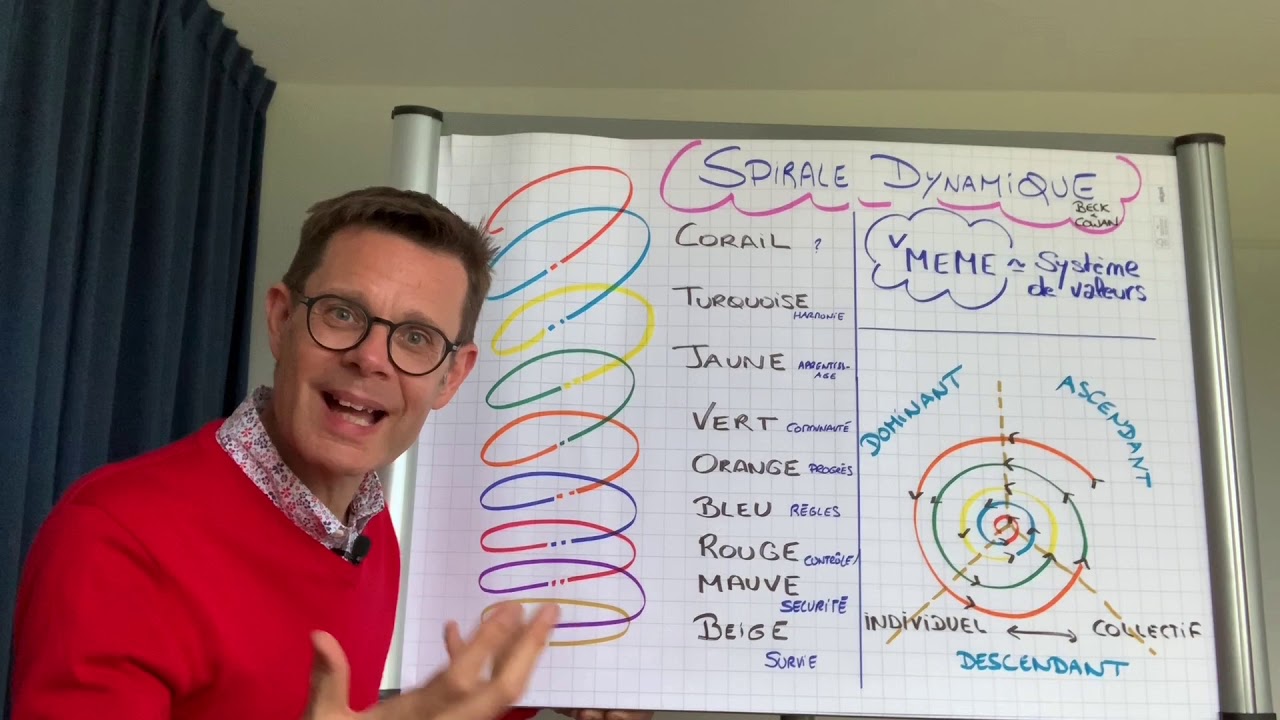 SPIRALE DYNAMIQUE
BECK
& COWAN
CORAIL ?
TURQUOISE
HARMONIE
JAUNE APPRENTISS-
AGE
VERT COMMUNAUTÉ
ORANGE PROGRÈS
BLEU RÈGLES
ROUGE CONTRÔLE/
MAUVE
SÉCURITÉ
BEIGE
SURVIE
vMEME ~ Système
de valeurs
DOMINANT
ASCENDANT
INDIVIDUEL ⟷ COLLECTIF
DESCENDANT